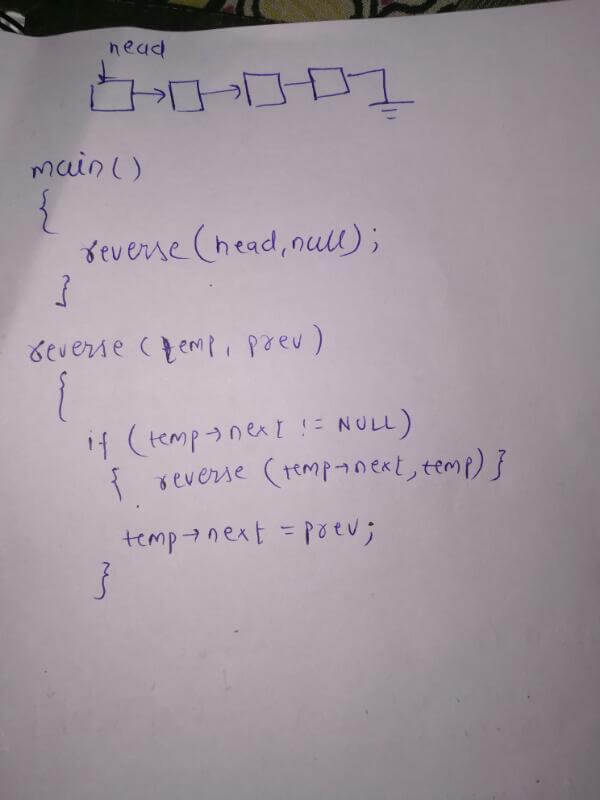 head
main()
{
reverse(head,null);
}
reverse (temp, prev)
{
if (temp→next != NULL)
{ reverse (temp→next, temp) }
temp→next = prev;
}